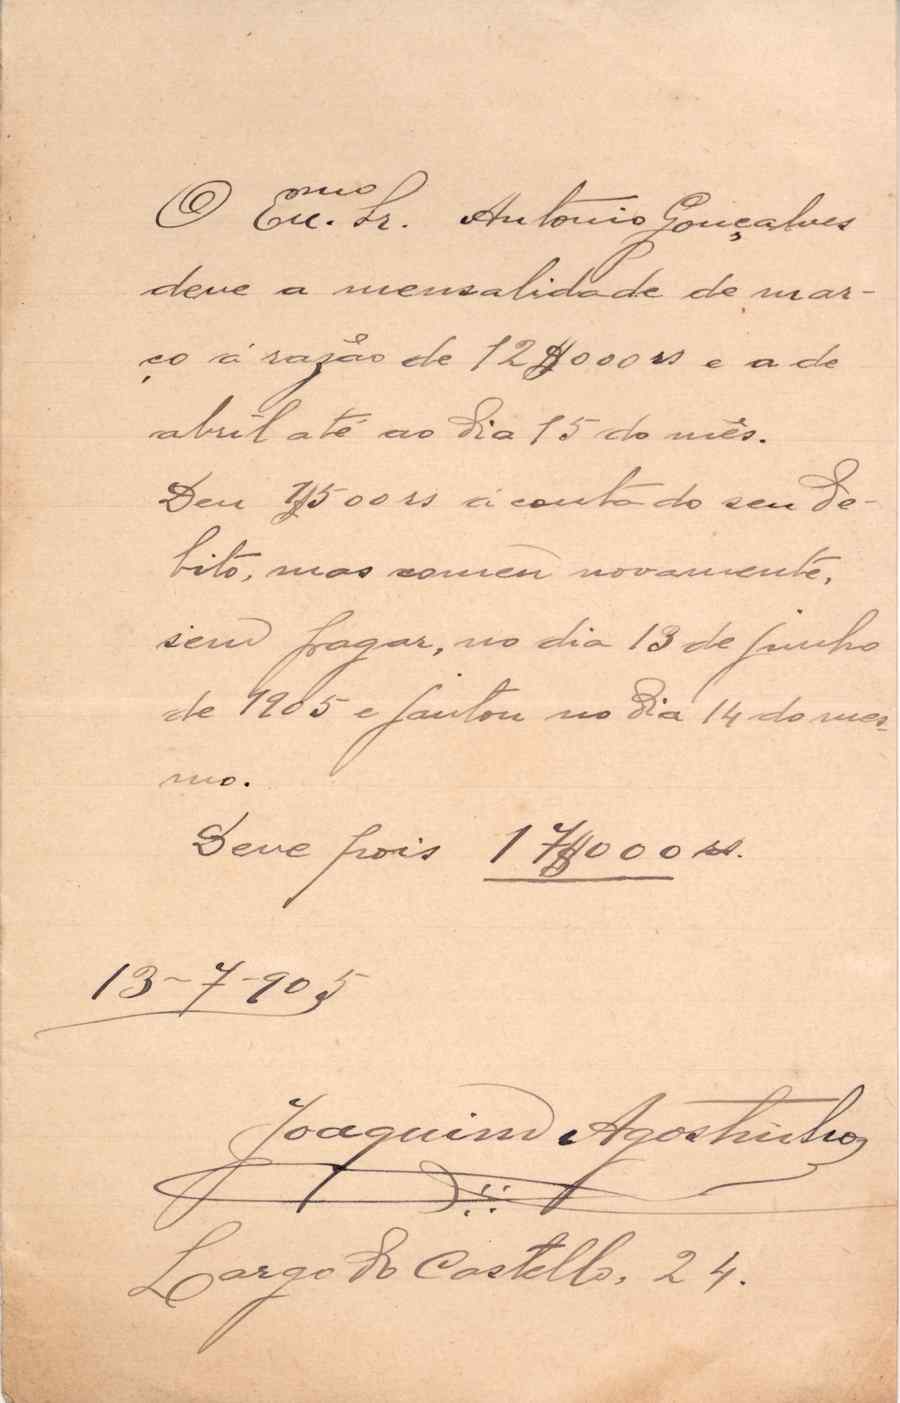 O Exmo. Sr. Antonio Gonçalves
deve a mensalidade de mar-
ço á razão de 12$000 rs e a de
abril até ao dia 15 do mês.
Deu 1$500 rs á conta do seu de-
bito, mas comeu novamente,
sem pagar, no dia 13 de junho
de 1905 e jantou no dia 14 do mes-
mo.
Deve pois 17$000 rs.
13-7-905
Joaquim Agostinho
Largo do Castello, 24.